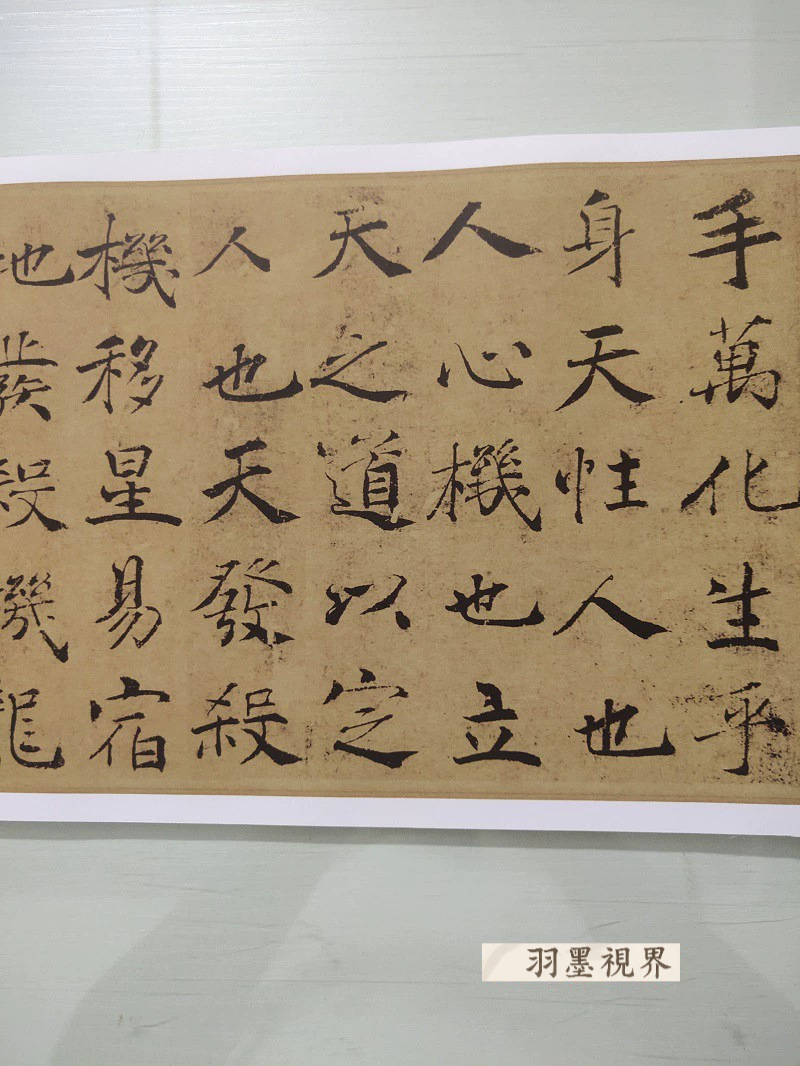 手萬化生乎
身天性人也
人心機也立
天之道以定
人也天發殺
機移星易宿
地發殺機龍
羽墨視界